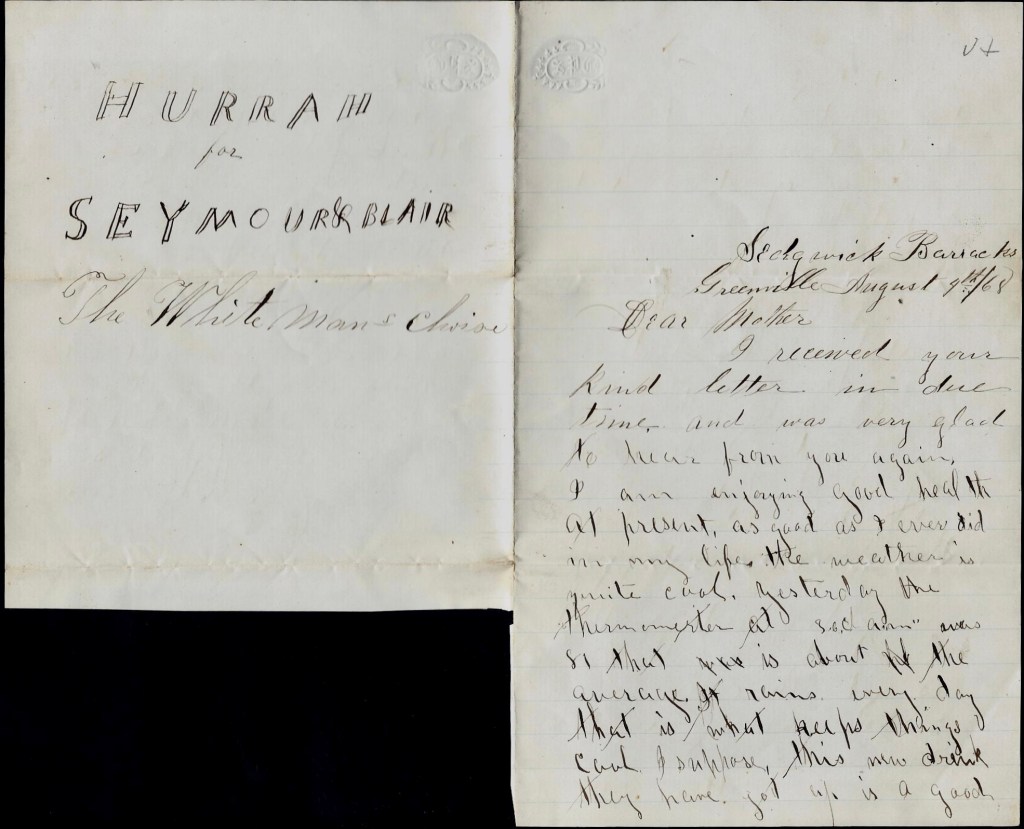 HURRAH
for
SEYMOUR & BLAIR
The White mans choise
Sedgwick Barracks
Greenville August 9th/68
Dear Mother
I received your
kind letter in due
time, and was very glad
to hear from you again,
I am enjoying good health
at present, as good as I ever did
in my life, the weather is
quite cool. yesterday the
thermomester at was
81 that is about the
average, It rains every day
that is what keeps things
cool I suppose, this new drink
they have got up is a good